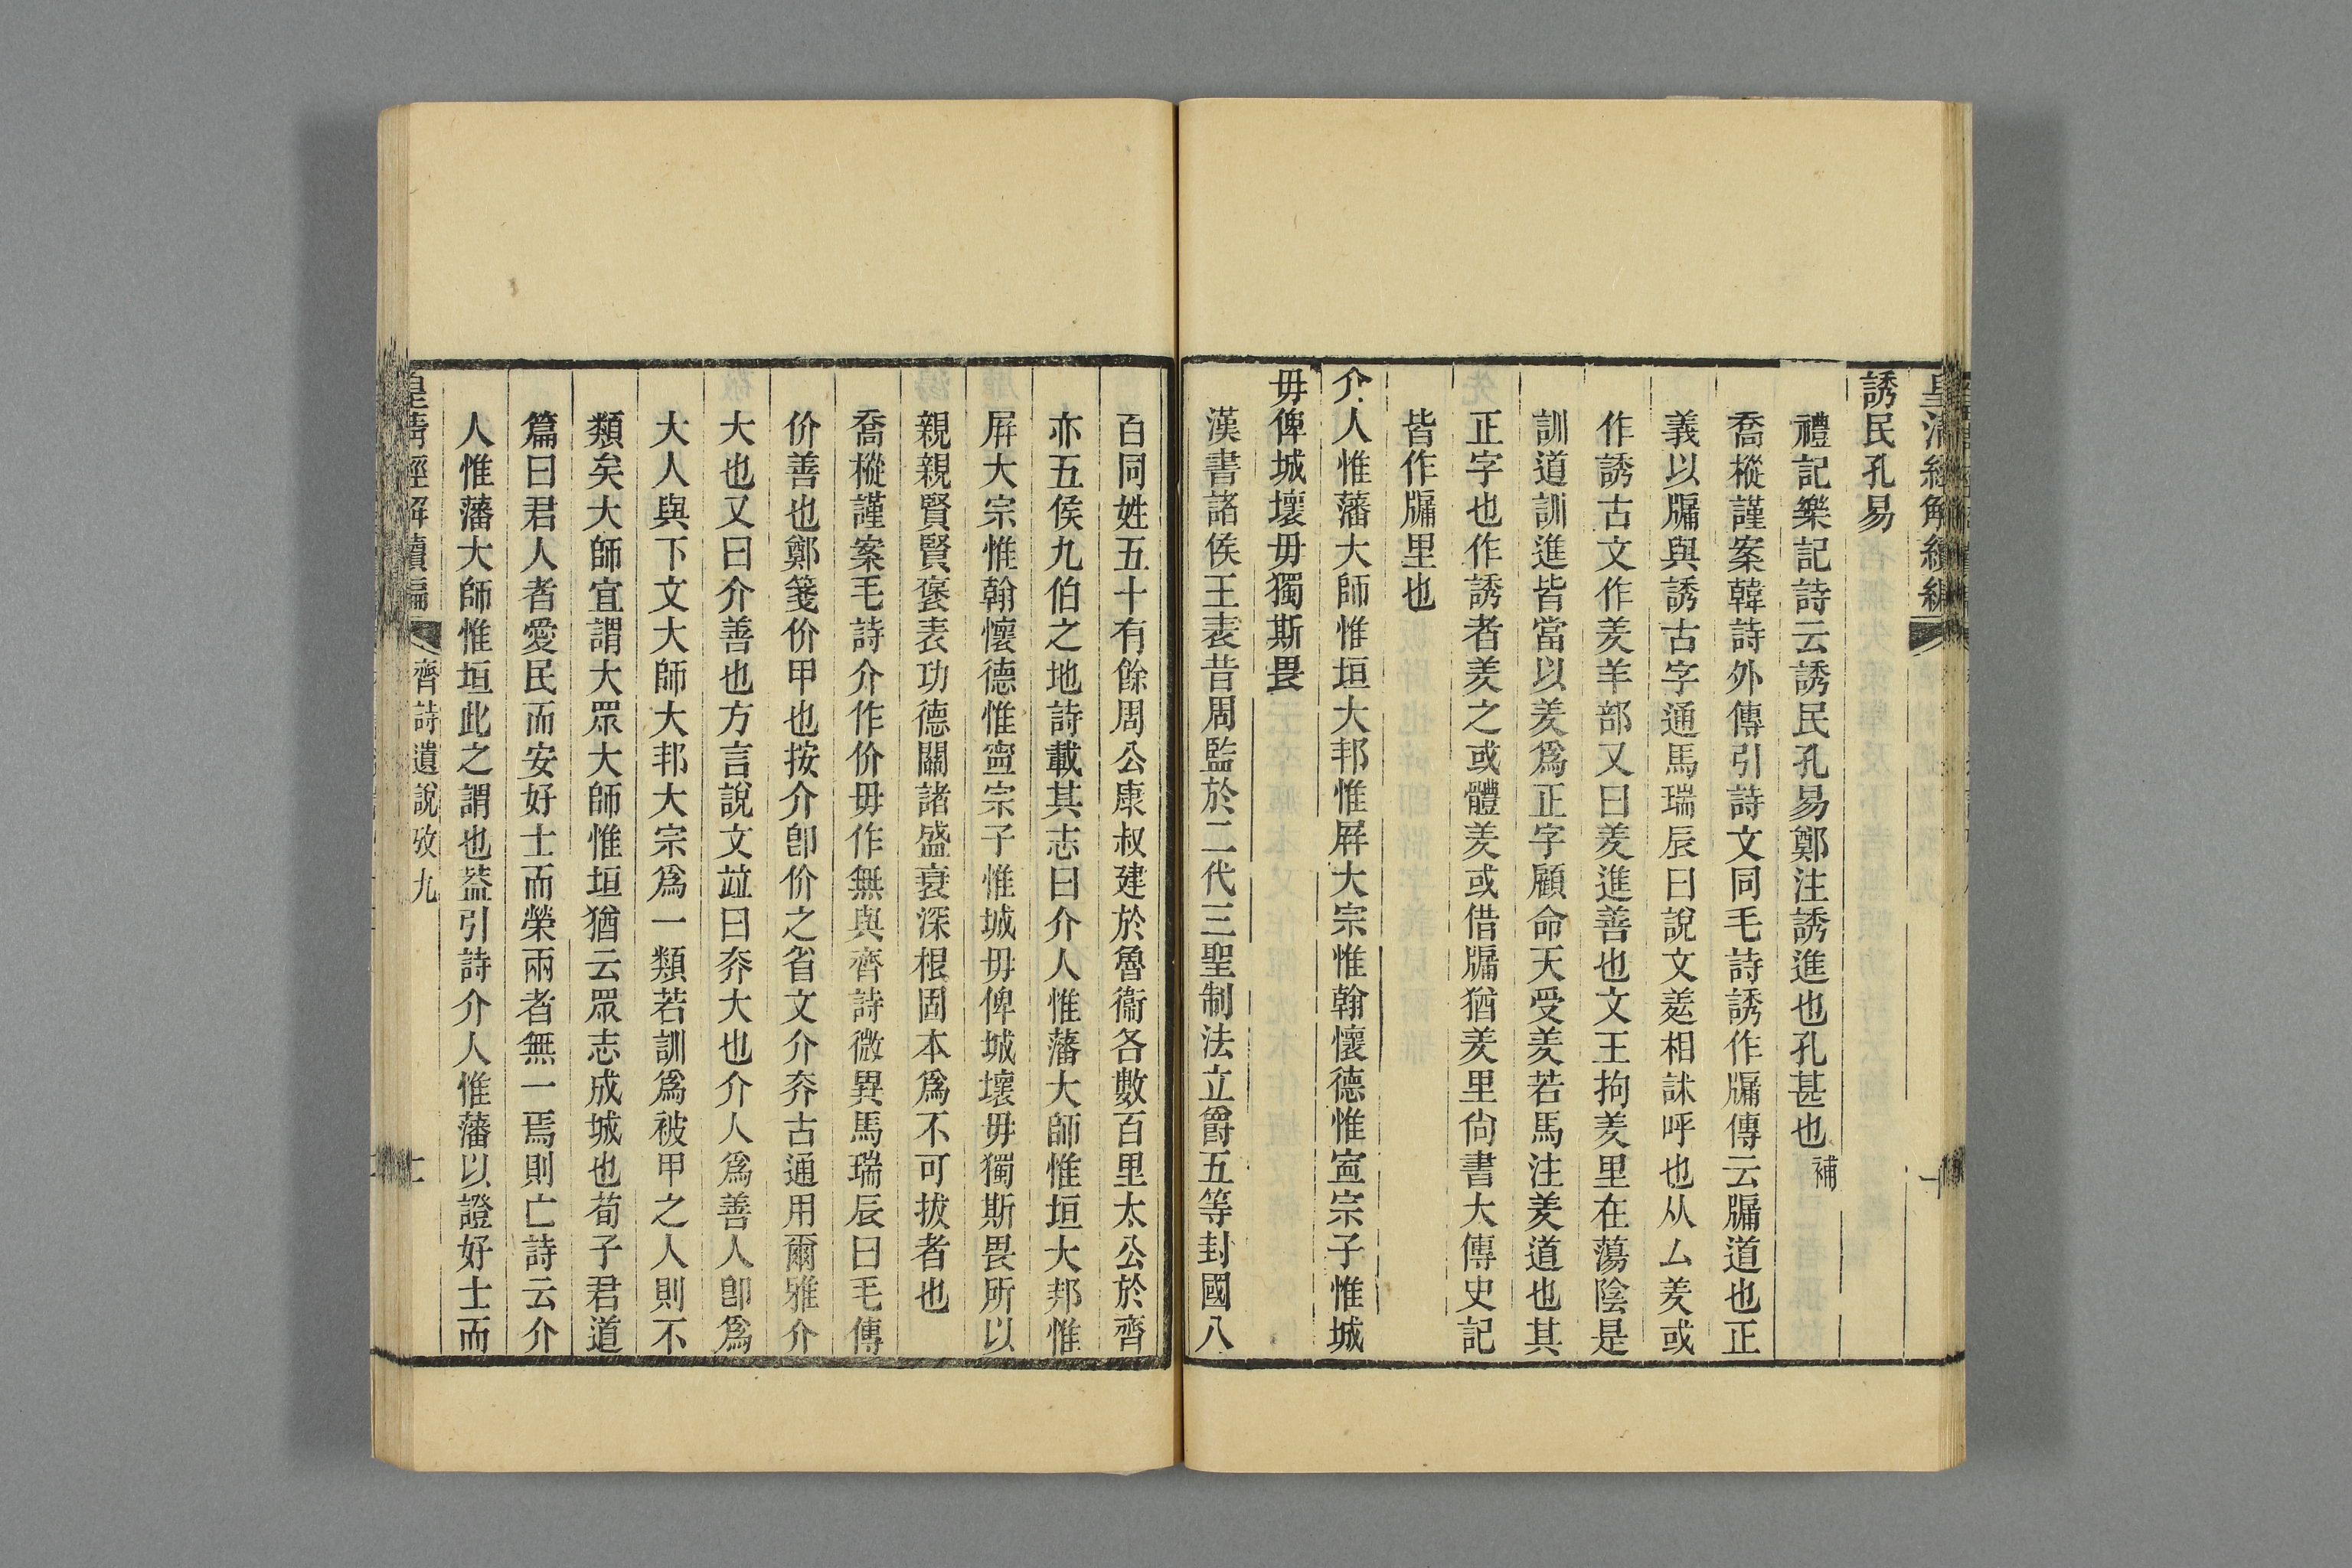 皇清經解續編
誘民孔易
禮記樂記詩云誘民孔易鄭注誘進也孔甚也補
喬樅謹案韓詩外傳引詩文同毛詩誘作牖傳云牖道也正
義以牖與誘古字通馬瑞辰曰說文羑相訹呼也从厶羑或
作誘古文作羑羊部又曰羑進善也文王拘羑里在蕩陰是
訓道訓進皆當以羑爲正字顧命天受羑若馬注羑道也其
正字也作誘者羑之或體羑或借牖猶羑里尙書大傳史記
皆作牖里也
介人惟藩大師惟垣大邦惟屛大宗惟翰懷德惟寍宗子惟城
毋俾城壞毋獨斯畏
漢書諸侯王表昔周監於二代三聖制法立爵五等封國八
百同姓五十有餘周公康叔建於魯衞各數百里太公於齊
亦五侯九伯之地詩載其志曰介人惟藩大師惟垣大邦惟
屛大宗惟翰懷德惟寍宗子惟城毋俾城壞毋獨斯畏所以
親親賢賢褒表功德關諸盛衰深根固本爲不可拔者也
喬樅謹案毛詩介作价毋作無與齊詩微異馬瑞辰曰毛傳
价善也鄭箋价甲也按介卽价之省文介夰古通用爾雅介
大也又曰介善也方言說文竝曰夰大也介人爲善人卽爲
大人與下文大師大邦大宗爲一類若訓爲被甲之人則不
類矣大師宜謂大眾大師惟垣猶云眾志成城也荀子君道
篇曰君人者愛民而安好士而榮兩者無一焉則亡詩云介
人惟藩大師惟垣此之謂也葢引詩介人惟藩以證好士而
皇清經解續編 齊詩遺說攷九